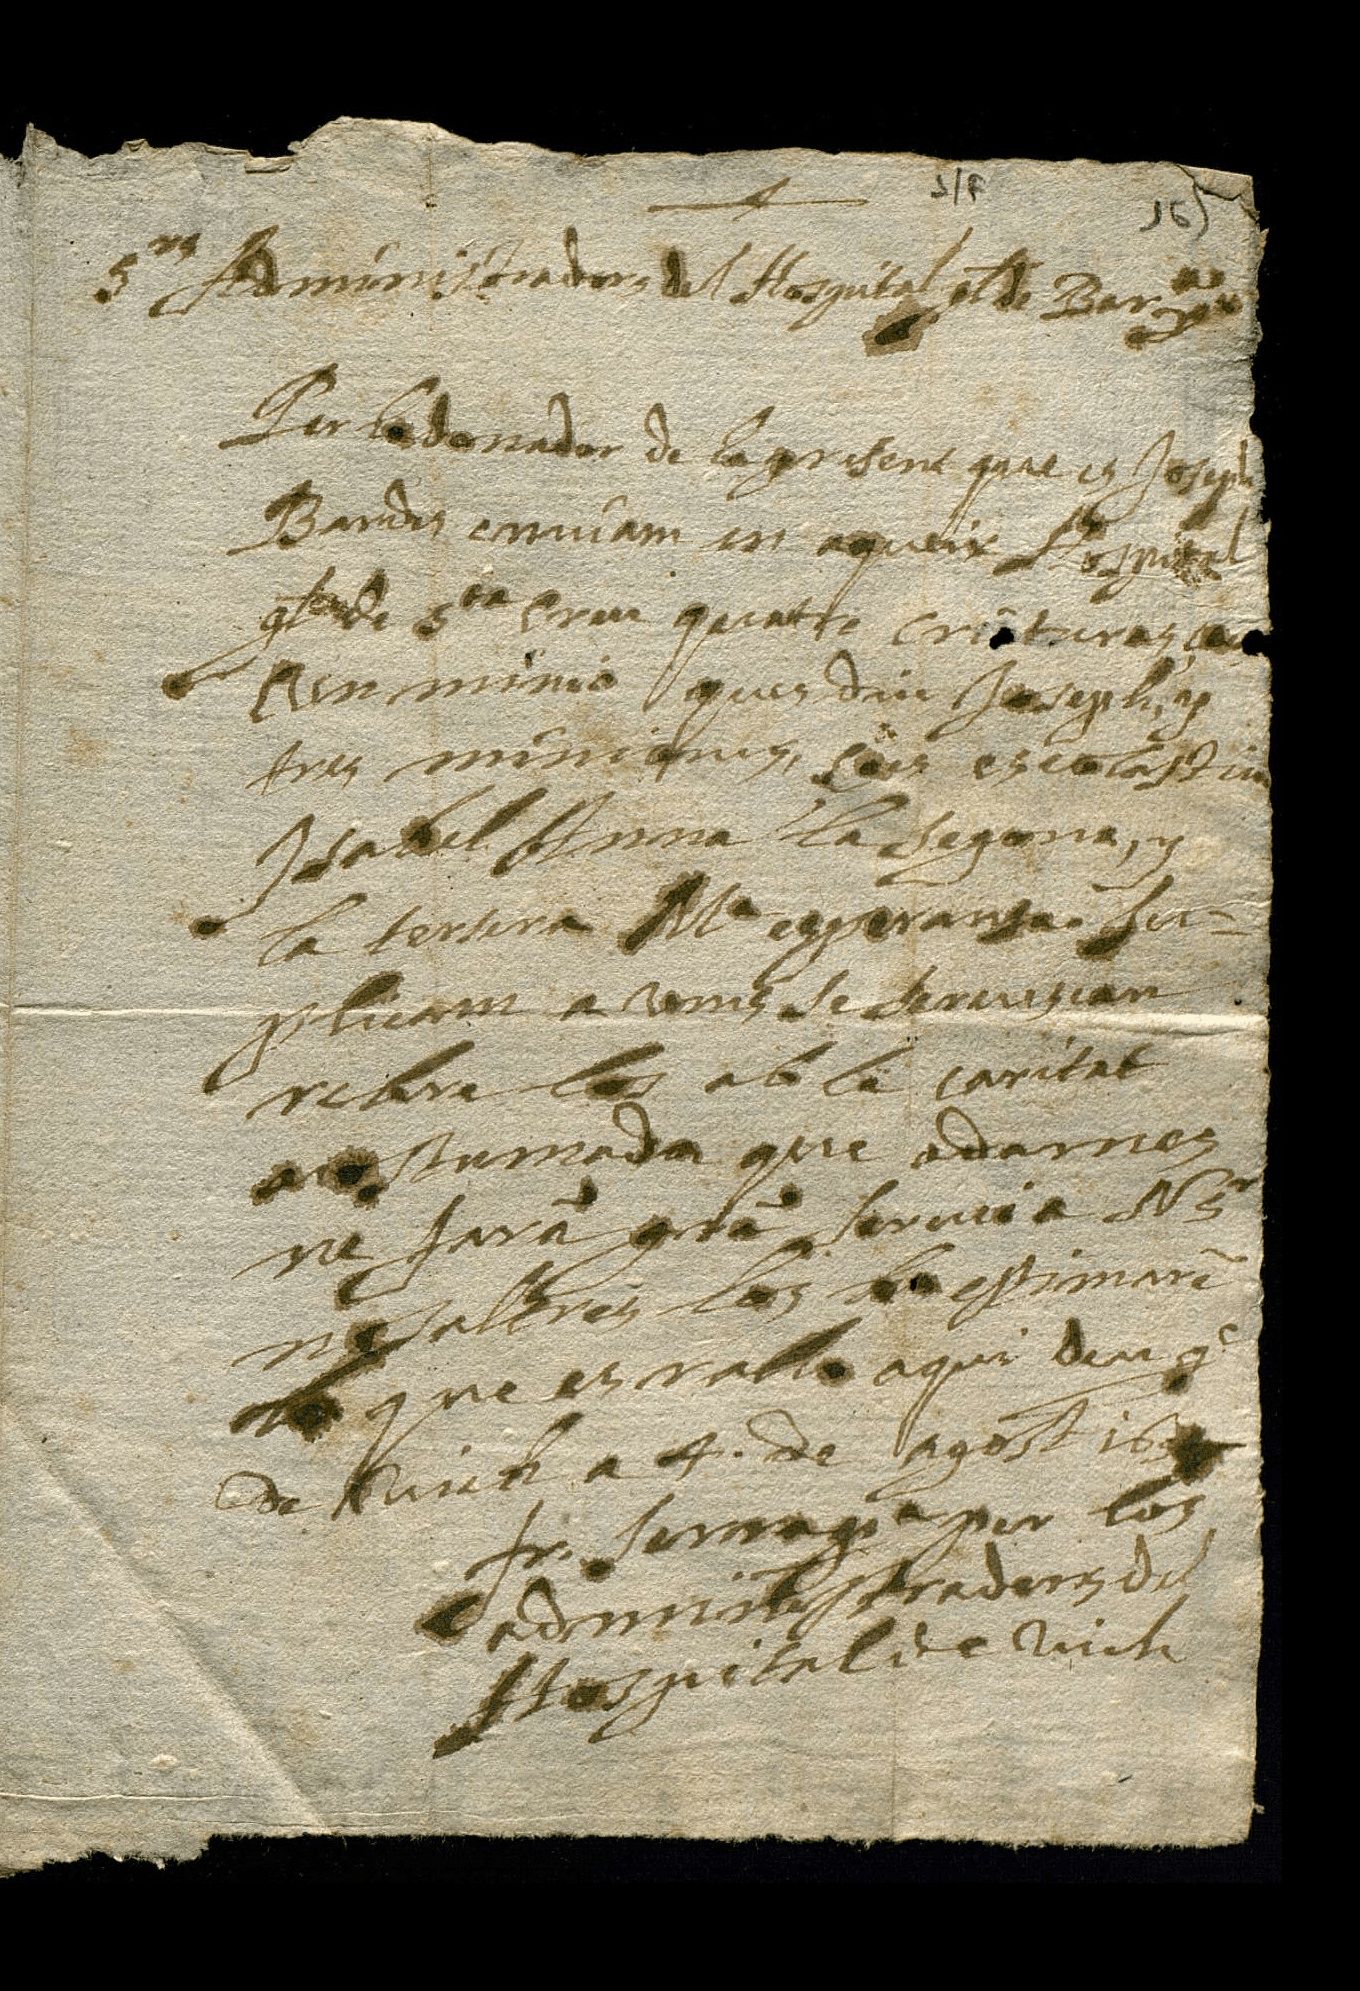 Srs Administradors del Hospital gl de Barna
Per lo donador de la present que es Joseph
Bardes enviam en aqueix Hospital
gl de Sta Creu quatre criaturas,
un minio ques diu Joseph, y
tres miniones,
Isabel Anna la segona, y
la tersera Ma esperansa. Su-
plicam a vms se servescan
rebra los ab la caritat
acostumada que adames
ne farã grã servici a N Sr
nosaltres los ho estimarẽ
lo que es raho aqui deu ge
de Vich a 4. de agost
fr. per los
administradors del
Hospital de Vich